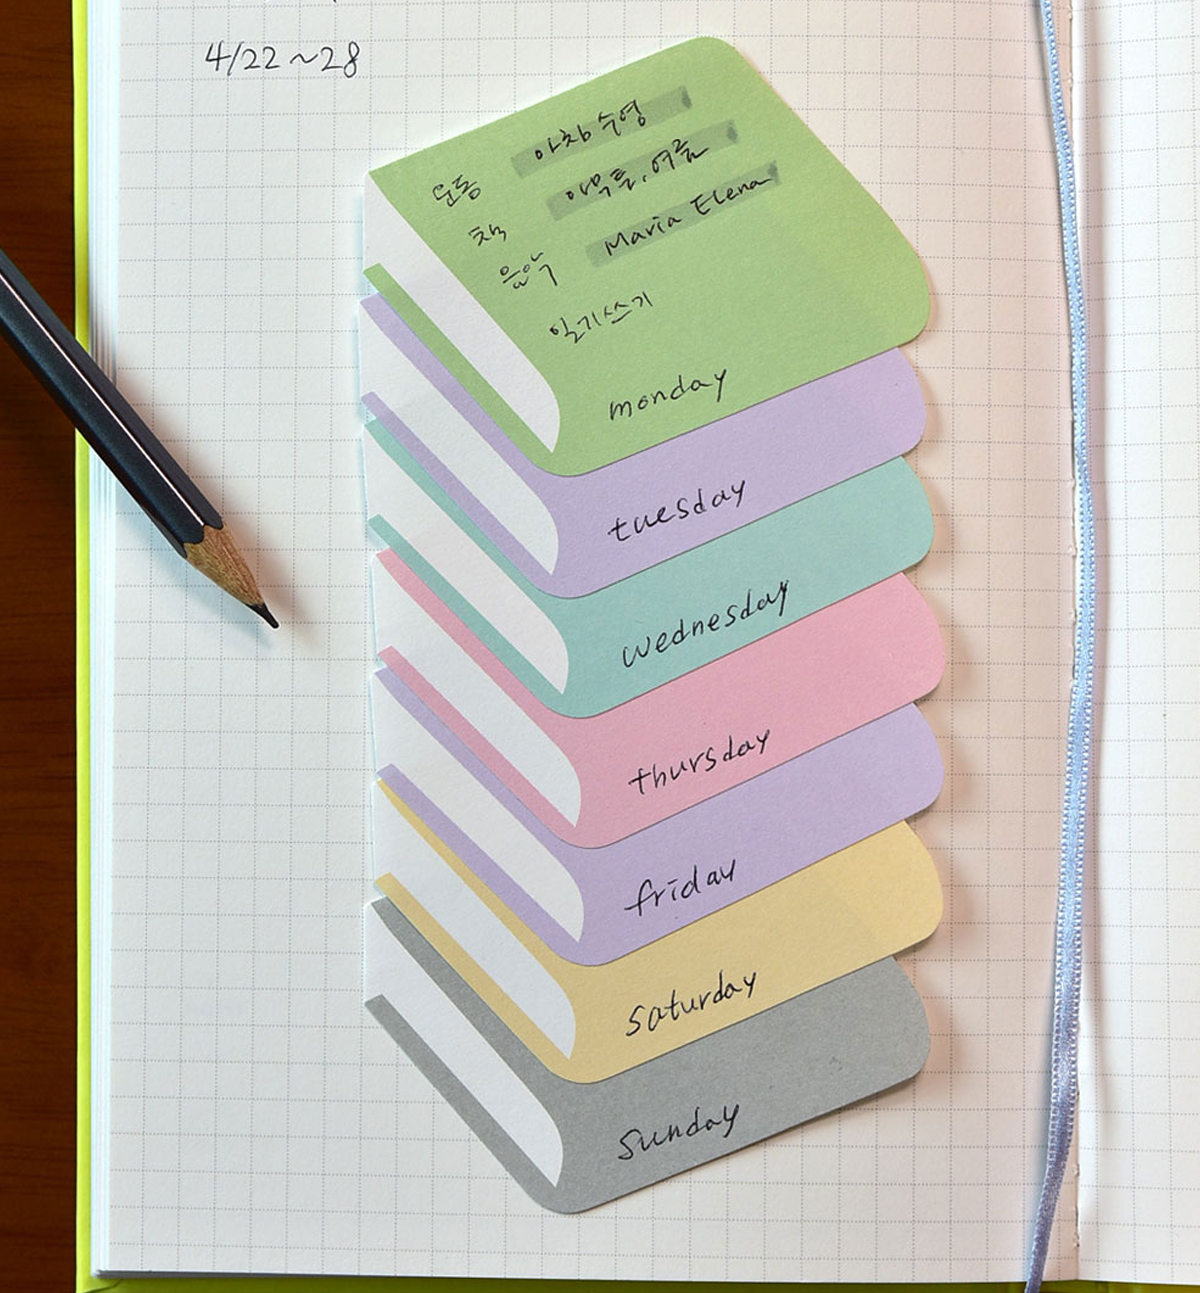 4/22 ~28
운동 아침 수영
책 아무튼, 여름
음악 Maria Elena
일기쓰기
monday
tuesday
wednesday
thursday
friday
saturday
sunday